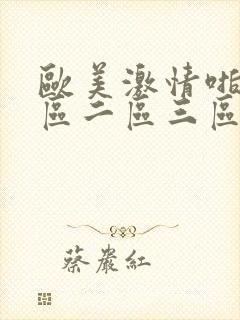 歐美激情啪
區二區三區
蔡嚴紅